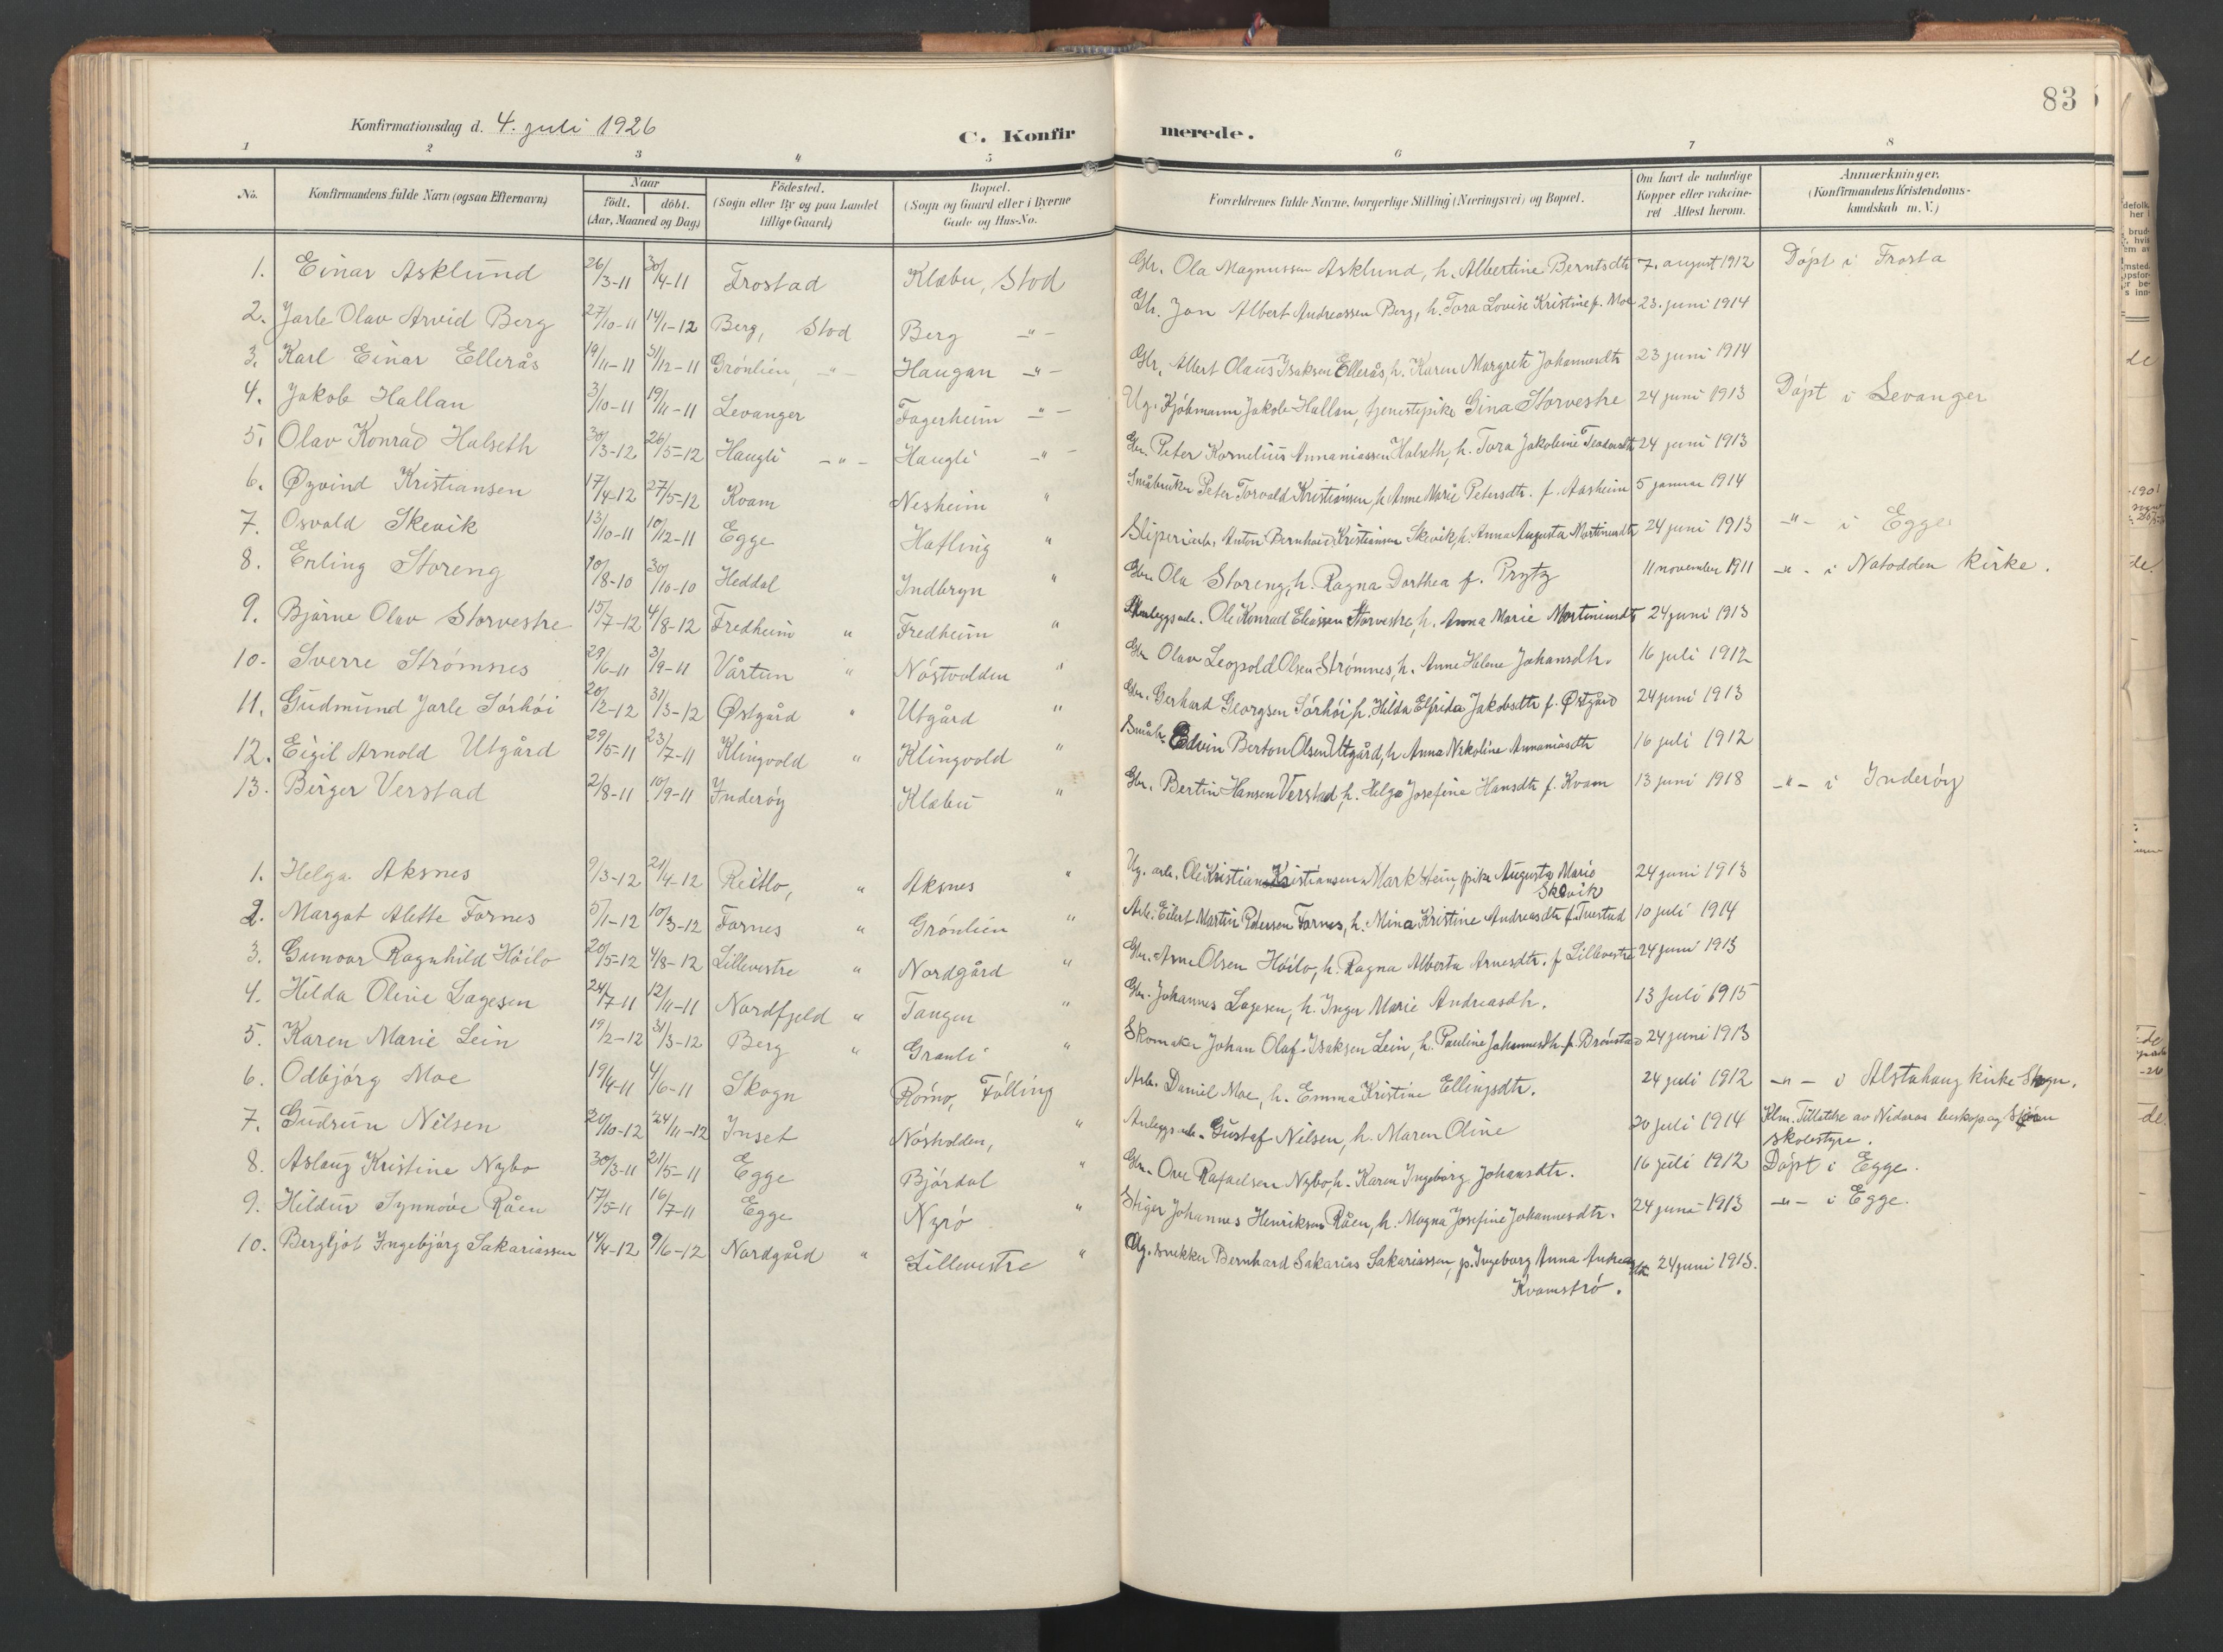 83
Konfirmationsdag d. 4. juli 1926
C. Konfirmerede.
1 2 3 4 5 6 7 8
No. Konfirmandens fulde Navn (ogsaa Efternavn) Naar födt. döbt. (Aar, Maaned og Dag) Födested. (Sogn eller By og paa Landet tillige Gaard) Bopæl. (Sogn og Gaard eller i Byerne Gade og Hus-No. Forældrenes fulde Navne, borgerlige Stilling (Næringsvei) og Bopæl. Om havt de naturlige Kopper eller vakcineret Attest herom. Anmærkninger. (Konfirmandens Kristendomskundskab m. V.)
1. Einar Asklund 26/3-11 30/4-11 Frostad Klæbu, Stod Gbr. Ola Magnussen Asklund, h. Albertine Berntsdtr 7. august 1912 Döpt i Frosta
2. Jarle Olav Arvid Berg 27/10-11 14/1-12 Berg, Stod Berg -"- Gbr. Jon Albert Andreassen Berg, h. Tora Lovise Kristine f. Moe 23. juni 1914
3. Karl Einar Ellerås 19/11-11 31/12-11 Grönlien, -"- Haugan -"- Gbr. Albert Olaus Isaksen Ellerås, h. Karen Margrete Johannesdtr 23 juni 1914
4. Jakob Hallan 3/10-11 19/11-11 Levanger Fagerheim -"- Ug. Kjöbmann Jakob Hallan, tjenestepike Gina Storvestre 24 juni 1913 Döpt i Levanger
5. Olav Konrad Halseth 30/3-12 26/5-12 Haugli -"- Haugli -"- Gbr. Peter Kornelius Annaniassen Halseth, h. Tora Jakobine Teodorsdtr 24 juni 1913
6. Øyvind Kristiansen 17/4-12 27/5-12 Kvam Nesheim " Småbruker Peter Torvald Kristiansen, h. Anne Marie Petersdtr. f. Aasheim 5 januar 1914
7. Osvald Skevik 13/10-11 10/12-11 Egge Hafling " Sliperiarb. Anton Bernhard Kristiansen Skevik, h. Anna Augusta Martinusdtr 24 juni 1913 -"- i Egge
8. Erling Storeng 10/8-10 30/10-10 Heddal Indbryn " Gbr. Ola Storeng, h. Ragna Dorthea f. Prytz 11 november 1911 -"- i Notodden kirke.
9. Bjarne Olav Storvestre 15/7-12 4/8-12 Fredheim " Fredheim " Anleggsarb. Ole Konrad Eliassen Storvestre, h. Anna Marie Martiniusdtr 24 juni 1913
10. Sverre Strömnes 29/6-11 3/9-11 Vårtun " Nöstvolden " Gbr Olav Leopold Olsen Strömnes, h. Anne Helene Johansdtr. 16 juli 1912
11. Gudmund Jarle Sörhöi 20/2-12 31/3-12 Østgård " Utgård " Gbr. Gerhard Georgsen Sörhöi, h. Hilda Elfrida Jakobsdtr f. Østgård 24 juni 1913
12. Eigil Arnold Utgård 29/5-11 23/7-11 Klingvold " Klingvold " Småbr. Edvin Berton Olsen Utgård, h Anna Nikoline Annaniasdtr 16 juli 1912
13. Birger Verstad 2/8-11 10/9-11 Inderöy Klæbu " Gbr. Bertin Hansen Verstad, h. Helga Josefine Hansdtr f. Kvam 13 juni 1918 -"- i Inderöy
1. Helga Aksnes 9/3-12 21/4-12 Reitlo, " Aksnes " Ug. arb. Ole Kristian Kristiansen Markstein, pike Augusta Marie Skevik 24 juni 1913
2. Margot Alette Fornes 5/1-12 10/3-12 Fornes " Grönlien " Arb. Eilert Martin Pedersen Fornes, h. Mina Kristine Andreasdtr f. Tverstad 10 juli 1914
3. Gunvor Ragnhild Höilo 20/5-12 4/8-12 Lillevestre " Nordgård " Gbr. Arne Olsen Höilo, h. Ragna Alberta Arnesdtr. f Lillevestre 24 juni 1913
4. Hilda Oline Lagesen 24/7-11 12/11-11 Nordfjeld " Tangen " Gbr. Johannes Lagesen, h. Inger Marie Andreasdtr. 13 juli 1915
5. Karen Marie Lein 19/2-12 31/3-12 Berg " Granli " Skomaker Johan Olaf Isaksen Lein, h. Pauline Johannesdtr f. Brönstad 24 juni 1913
6. Odbjörg Moe 19/4-11 4/6-11 Skogn Römo, Fölling Arb. Daniel Moe, h. Emma Kristine Ellingsdtr. 24 juli 1912 -"- i Alstahaug kirke Skogn.
7. Gudrun Nilsen 20/10-12 24/11-12 Inset Nösholden, " Anleggsarb. Gustaf Nilsen, h. Maren Oline 20 juli 1914 Klm. Tillatelse av Nidaros biskop og skolestyre.
8. Aslaug Kristine Nybo 30/3-11 21/5-11 Egge Björdal " Gbr. Ove Rafaelsen Nybo, h. Karen Ingeborg Johansdtr. 16 juli 1912 Döpt i Egge.
9. Hildur Synnöve Råen 17/5-11 16/7-11 Egge Nyrö " Stiger Johannes Henriksen Råen, h. Magna Josefine Johannesdtr. 24 juni 1913 -"- i Egge.
10. Bergljot Ingebjörg Sakariassen 14/4-12 9/6-12 Nordgård " Lillevestre " Ug. snekker Bernhard Sakarias Sakariassen, p. Ingeborg Anna Andreasdtr. Kvamströ. 24 juni 1913.